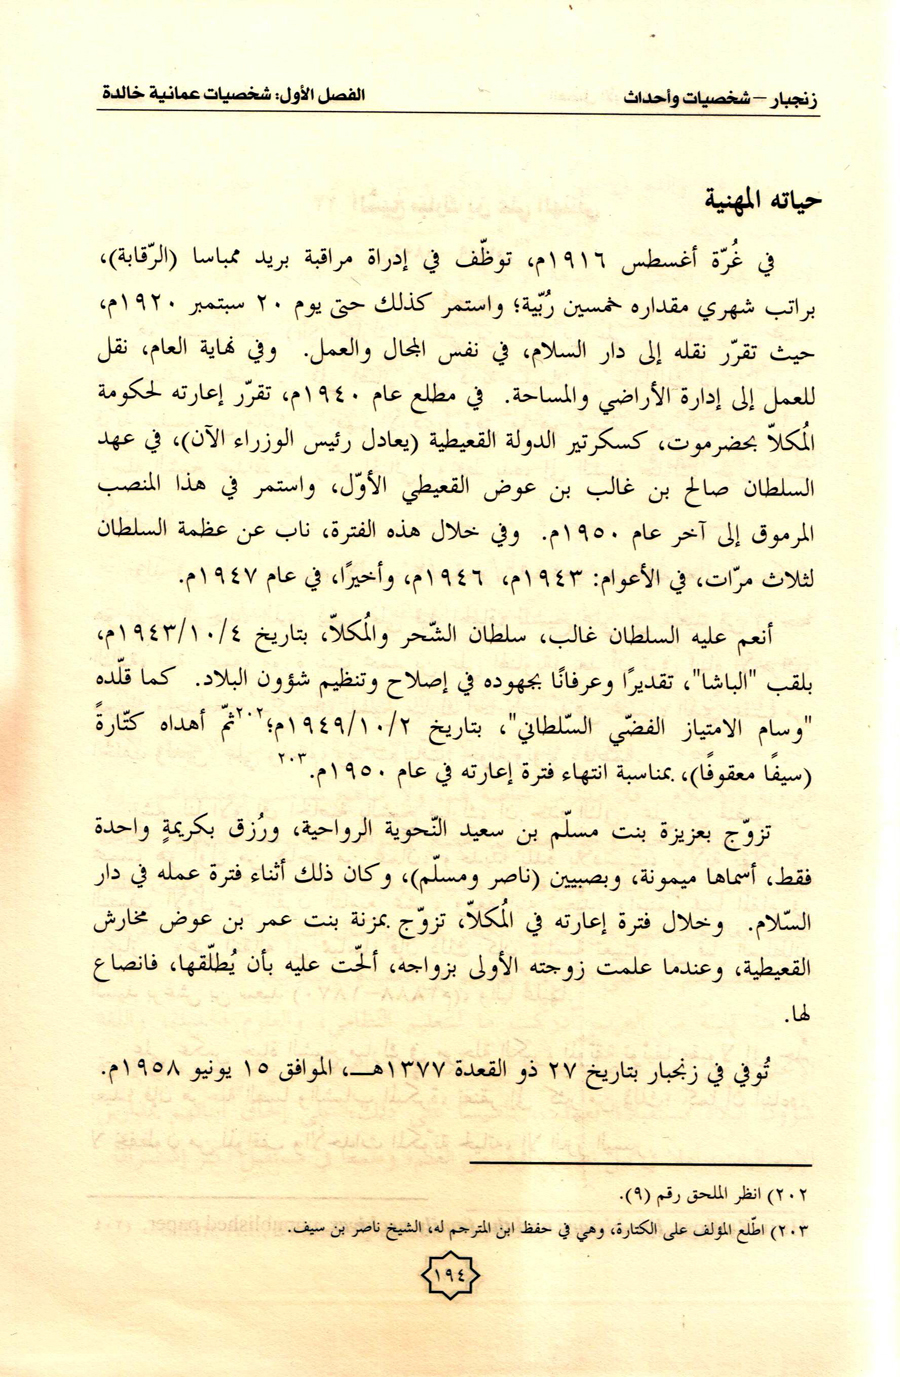 زنجبار – شخصيات وأحداث
الفصل الأول: شخصيات عمانية خالدة
حياته المهنية
في غُرّة أغسطس ١٩١٦م، توظّف في إدراة مراقبة بريد ممباسا (الرّقابة)،
براتب شهري مقداره خمسين رُبّية؛ واستمر كذلك حتى يوم ٢٠ سبتمبر ١٩٢٠م،
حيث تقرّر نقله إلى دار السلام، في نفس المجال والعمل. وفي نهاية العام، نقل
للعمل إلى إدارة الأراضي والمساحة. في مطلع عام ١٩٤٠م، تقرّر إعارته لحكومة
المُكلاّ بحضرموت، كسكرتير الدولة القعيطية (يعادل رئيس الوزراء الآن)، في عهد
السلطان صالح بن غالب بن عوض القعيطي الأوّل، واستمر في هذا المنصب
المرموق إلى آخر عام ١٩٥٠م. وفي خلال هذه الفترة، ناب عن عظمة السلطان
لثلاث مرّات، في الأعوام: ١٩٤٣م، ١٩٤٦م، وأخيرًا، في عام ١٩٤٧م.
أنعم عليه السلطان غالب، سلطان الشّحر والمُكلاّ، بتاريخ ١٩٤٣/١٠/٤م،
بلقب "الباشا"، تقديرًا وعرفانًا بجهوده في إصلاح وتنظيم شؤون البلاد. كما قلّده
"وسام الامتياز الفضّي السّلطاني"، بتاريخ ١٩٤٩/١٠/٢م؛٢٠٢ ثمّ أهداه كتّارةً
(سيفًا معقوفًا)، بمناسبة انتهاء فترة إعارته في عام ١٩٥٠م.٢٠٣
تزوّج بعزيزة بنت مسلّم بن سعيد النّحوية الرواحية، ورُزق بكريمةٍ واحدة
فقط، أسماها ميمونة، وبصبيين (ناصر ومسلّم)، وكان ذلك أثناء فترة عمله في دار
السّلام. وخلال فترة إعارته في المُكلاّ، تزوّج بمزنة بنت عمر بن عوض مخارش
القعيطية، وعندما علمت زوجته الأولى بزواجه، ألحّت عليه بأن يُطلّقها، فانصاع
لها.
تُوفي في زنجبار بتاريخ ٢٧ ذو القعدة ١٣٧٧هـ، الموافق ١٥ يونيو ١٩٥٨م.
٢٠٢) انظر الملحق رقم (٩).
٢٠٣) اطّلع المؤلف على الكتارة، وهي في حفظ ابن المترجم له، الشيخ ناصر بن سيف.
١٩٤